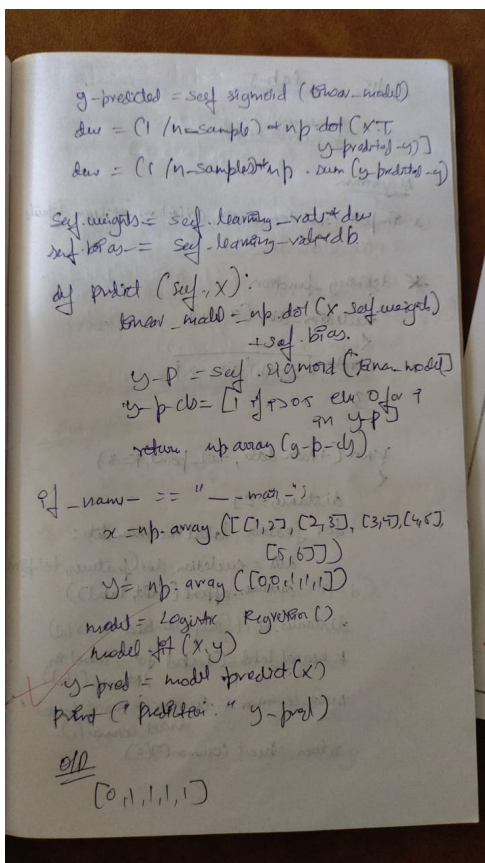 y-predicted = self sigmoid (linear_model)
dw = (1 /n_sample) * np dot (X.T,
y-predicted-y)]
dw = (1 /n_samples) * np . sum (y-predicted-y)
self.weights -= self.learning_rate * dw
self.bias -= self.learning-rate * db
def predict (self, X):
linear_model = np.dot (X self.weights)
+ self.bias.
y-p = self.sigmoid (linear_model]
y-p-cls = [1 if i>0.5 else 0 for i
in y-p]
return np array (y-p-cls).
if _name_ == "__main_";
x = np. array ([[1,2], [2,3], [3,4], [4,5],
[5,6]])
y = np. array ([0,0,1,1,1])
model = Logistic Regression ().
model.fit (X,y)
y-pred = model predict (x)
print (" Prediction: " y-pred)
O/P
[0,1,1,1,1]